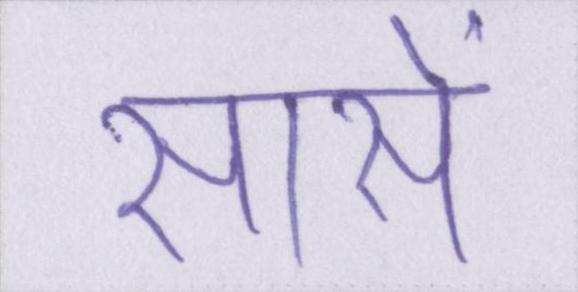 सासें